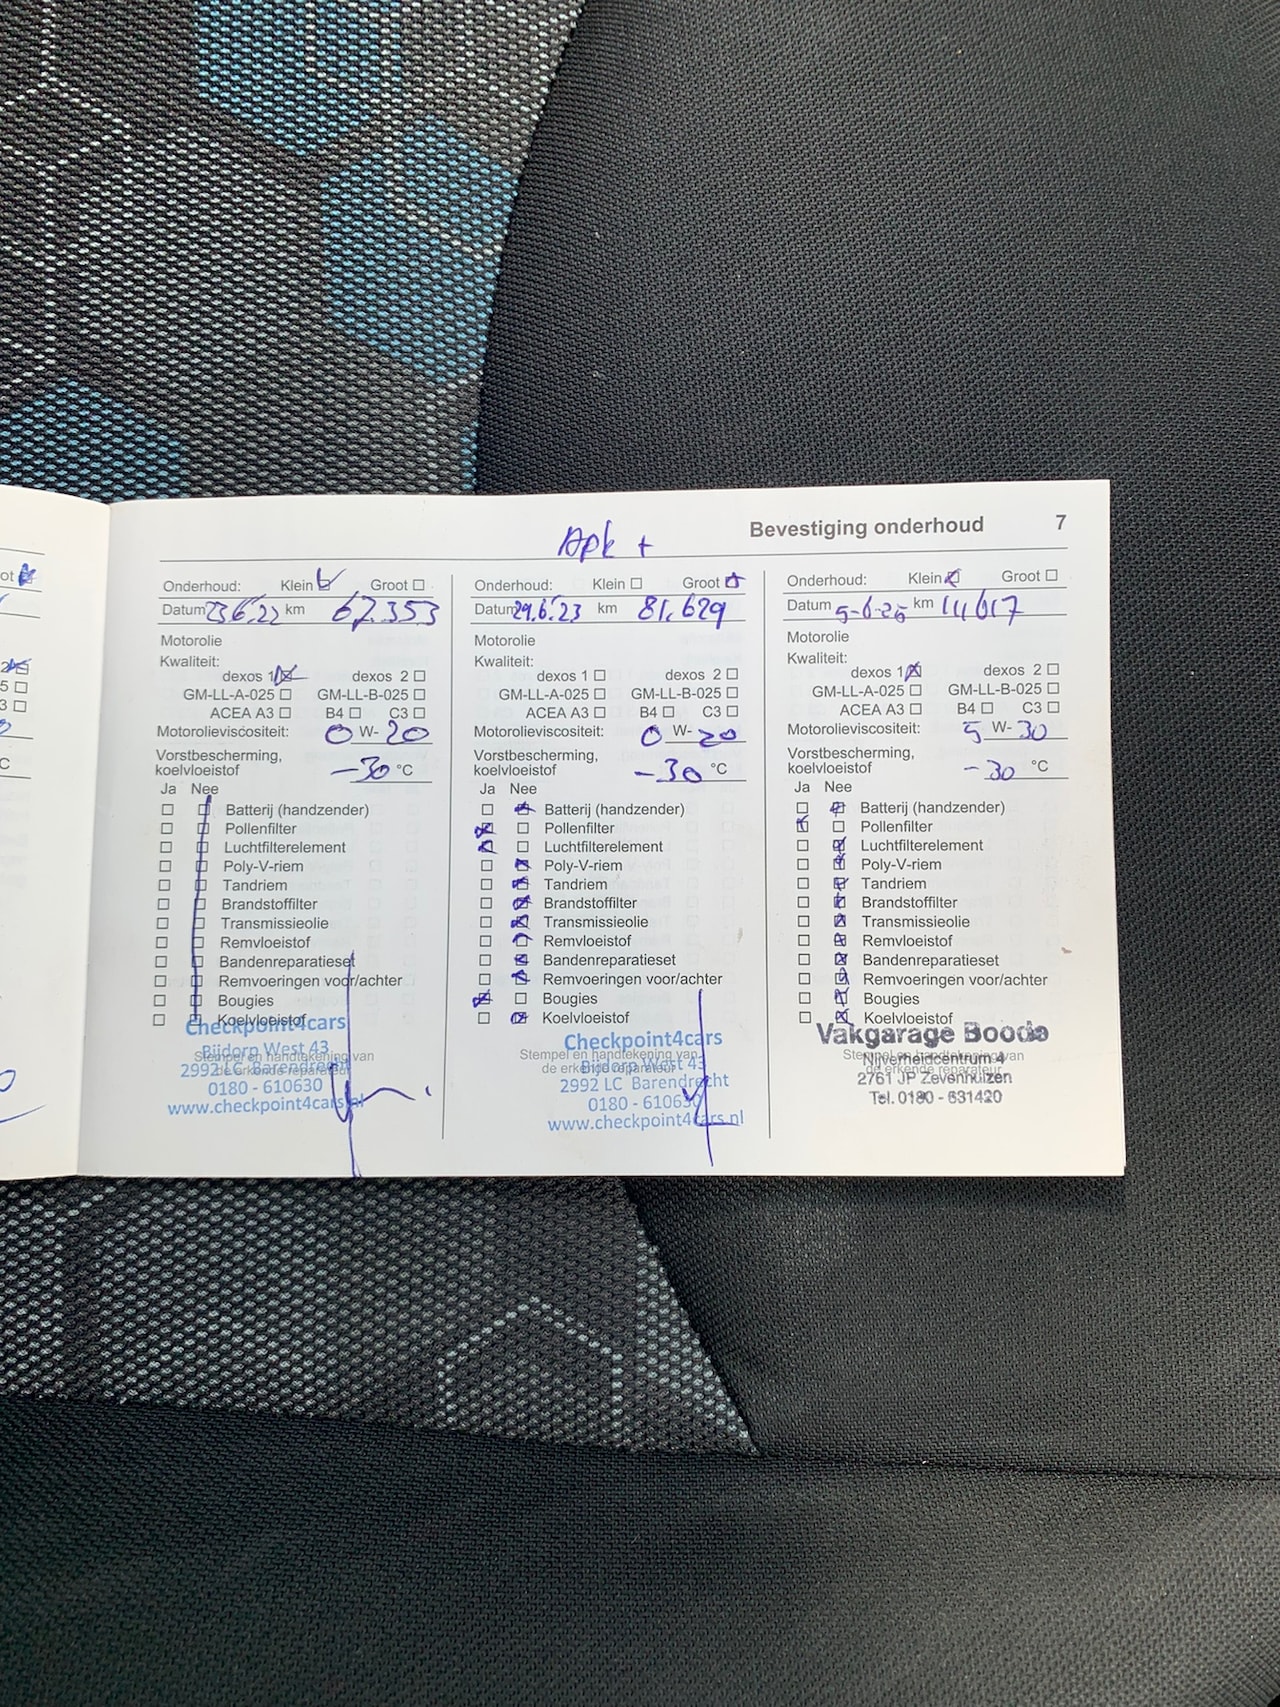 Apk +
Bevestiging onderhoud 7
Onderhoud: Klein Groot
Datum 23.6.22 km 67.353
Motorolie
Kwaliteit:
dexos 1 dexos 2
GM-LL-A-025 GM-LL-B-025
ACEA A3 B4 C3
Motorolieviscositeit: 0 W- 20
Vorstbescherming,
koelvloeistof -30 °C
Ja Nee
Batterij (handzender)
Pollenfilter
Luchtfilterelement
Poly-V-riem
Tandriem
Brandstoffilter
Transmissieolie
Remvloeistof
Bandenreparatieset
Remvoeringen voor/achter
Bougies
Koelvloeistof
Checkpoint4cars
Bijdorp West 43
Stempel en handtekening van
2992 LC Barendrecht
de erkende reparateur
0180 - 610630
www.checkpoint4cars.nl
Onderhoud: Klein Groot
Datum 29.6.23 km 81.629
Motorolie
Kwaliteit:
dexos 1 dexos 2
GM-LL-A-025 GM-LL-B-025
ACEA A3 B4 C3
Motorolieviscositeit: 0 W- 20
Vorstbescherming,
koelvloeistof -30 °C
Ja Nee
Batterij (handzender)
Pollenfilter
Luchtfilterelement
Poly-V-riem
Tandriem
Brandstoffilter
Transmissieolie
Remvloeistof
Bandenreparatieset
Remvoeringen voor/achter
Bougies
Koelvloeistof
Checkpoint4cars
Stempel en handtekening van
Bijdorp West 43
de erkende reparateur
2992 LC Barendrecht
0180 - 610630
www.checkpoint4cars.nl
Onderhoud: Klein Groot
Datum km
Motorolie
Kwaliteit:
dexos 1 dexos 2
GM-LL-A-025 GM-LL-B-025
ACEA A3 B4 C3
Motorolieviscositeit: 5 W- 30
Vorstbescherming,
koelvloeistof -30 °C
Ja Nee
Batterij (handzender)
Pollenfilter
Luchtfilterelement
Poly-V-riem
Tandriem
Brandstoffilter
Transmissieolie
Remvloeistof
Bandenreparatieset
Remvoeringen voor/achter
Bougies
Koelvloeistof
Vakgarage Boodo
Stempel en handtekening van
Nijverheidcentrum 4
de erkende reparateur
2761 JP Zevenhuizen
Tel. 0180 - 631420